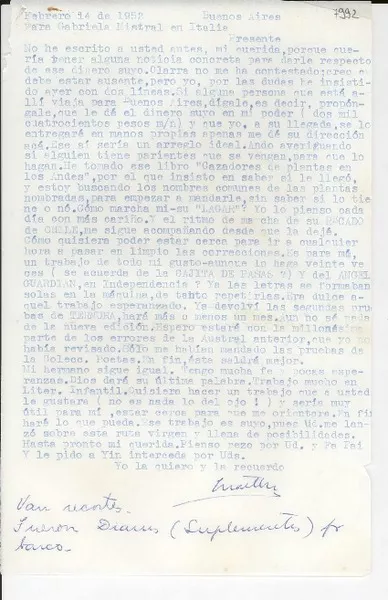 7992
Febrero 14 de 1952 Buenos Aires
Para Gabriela Mistral en Italia
Presente
No he escrito a usted antes, mi querida, porque que-
ría tener alguna noticia concreta para darle respecto
de ese dinero suyo. Olarra no me ha contestado, creo
debe estar ausente, pero yo, por las dudas he insisti-
do ayer con dos líneas. Si alguna persona que está a-
llí viaja para Buenos Aires, dígale, es decir, propón-
gale, que le dé el dinero suyo en mi poder ( dos mil
cuatrocientos pesos m/n) y que yo, a su llegada, se lo
entregaré en manos propias apenas me dé su dirección
acá. Ese sí sería un arreglo ideal. Ando averiguando
si alguien tiene parientes que se vengan, para que lo
hagan. He tomado ese libro "Cazadores de plantas en
los Andes", por el que insisto en saber si le llegó,
y estoy buscando los nombres comunes de las plantas
nombradas, para empezar a mandarle, sin saber si lo tie
ne o nó. Cómo marcha mi-su "LAGAR"? Yo lo pienso cada
día con más cariño. Y el ritmo de marcha de su RECADO
de CHILE, me sigue acompañando desde que la dejé.
Cómo quisiera poder estar cerca para ir a cualquier
hora a pasar en limpio las correcciones. Es para mí,
un trabajo de todo mi gusto-aunque lo haga veinte ve-
ces ( se acuerda de la CAJITA DE PASAS ?) Y del ANGEL
GUARDIAN, en Independencia ? Ya las letras se formaban
solas en la máquina, de tanto repetirlas. Era dulce a-
quel trabajo esperanzado. Ya devolví las segundas prue
bas de TERNURA, hará más o menos un mes. Aun no sé nada
de la nueva edición. Espero estaré con la millonésima
parte de los errores de la Austral anterior, que yo no
había revisado. Sólo me habían mandado las pruebas de
la Colecc. Poetas. En fin, ésta saldrá mejor.
Mi hermano sigue igual. Tengo mucha fe y pocas espe-
ranzas. Dios dará su última palabra. Trabajo mucho en
Liter. Infantil. Quisiera hacer un trabajo que a usted
le gustara ( no es nada lo del ojo !) y sería muy
útil para mí, estar cerca para que me orientara. En fin
haré lo que pueda. Ese trabajo es suyo, pues Ud. me lan-
zó sobre esta ruta virgen y llena de posibilidades.
Hasta pronto mi querida. Pienso y rezo por Ud. y Fe Pai
Y le pido a Yin interceda por Uds.
Yo la quiero y la recuerdo
Van recortes.
Fueron Diarios (Suplementos) por
barco.